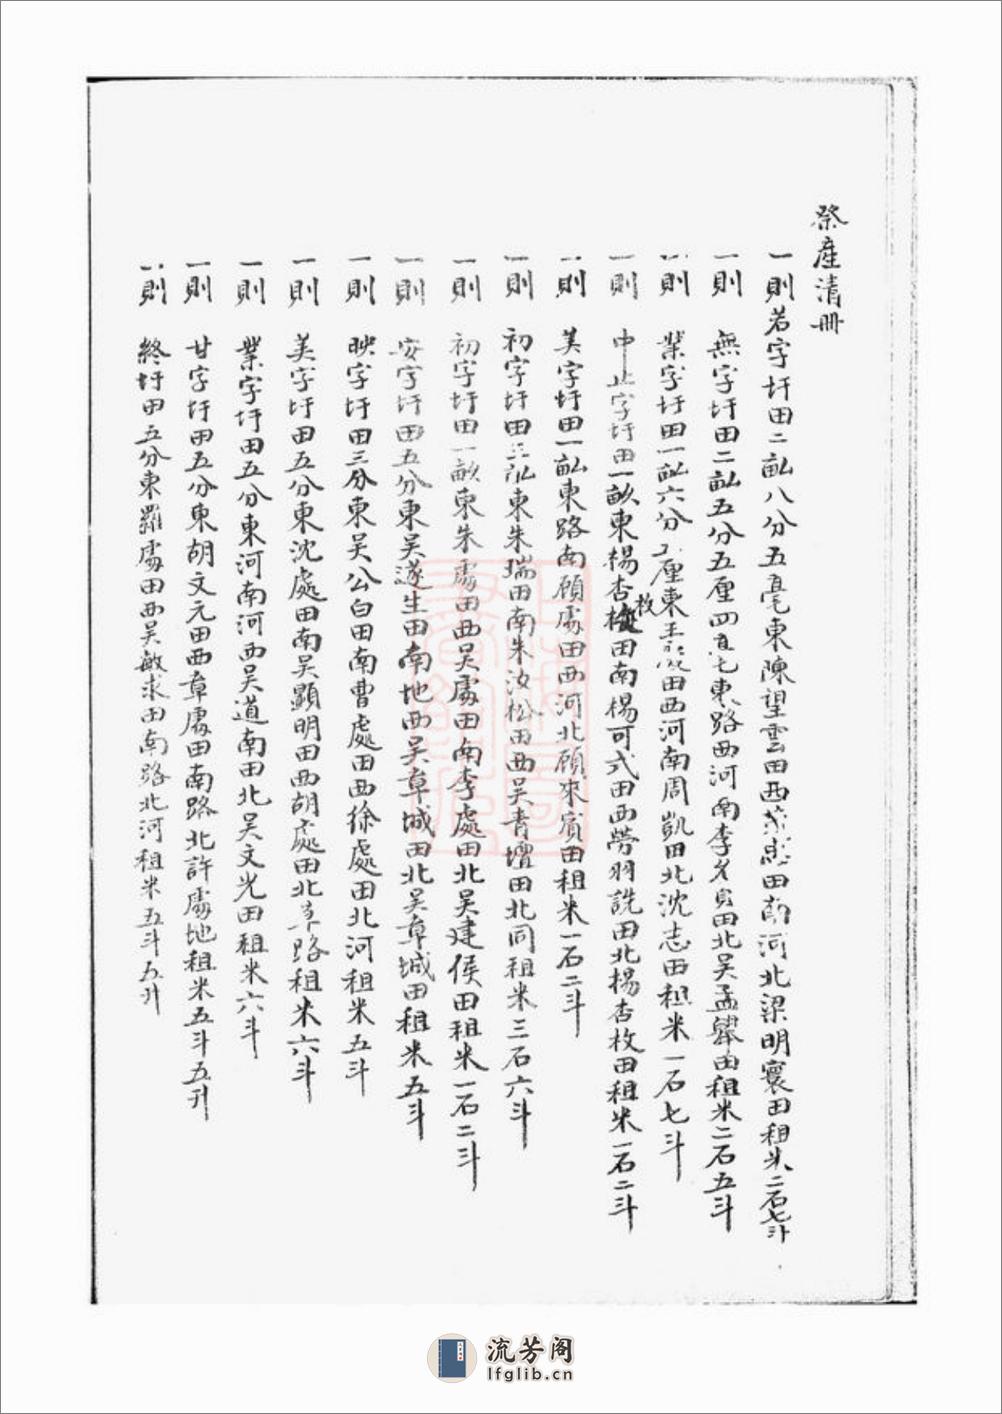 祭產清冊
一則若字圩田二畝八分五毫東陳望雲田西田南河北梁明寰田租米二石七斗
一則 無字圩田二畝五分五厘四毫東路西河南李田北吳孟田租米二石五斗
一則 業字圩田一畝六分厘東田西河南周凱田北沈志田租米一石七斗
一則 中止字圩田一畝東楊杏枚田南楊可式田西勞羽詵田北楊杏枚田租米一石二斗
一則 美字圩田一畝東路南顧處田西河北顧來賓田租米一石二斗
一則 初字圩田三畝東朱瑞田南朱汝松田西吳青壇田北同租米三石六斗
一則 初字圩田一畝東朱處田西吳處田南李處田北吳建侯田租米一石二斗
一則 安字圩田五分東吳遂生田南地西吳章城田北吳章城田租米五斗
一則 映字圩田三分東吳公白田南曹處田西徐處田北河租米五斗
一則 美字圩田五分東沈處田南吳顯明田西胡處田北路租米六斗
一則 業字圩田五分東河南河西吳道南田北吳文光田租米六斗
一則 甘字圩田五分東胡文元田西章處田南路北許處地租米五斗五升
一則 終圩田五分東羅處田西吳敏求田南路北河租米五斗五升
流芳阁
lfglib.cn